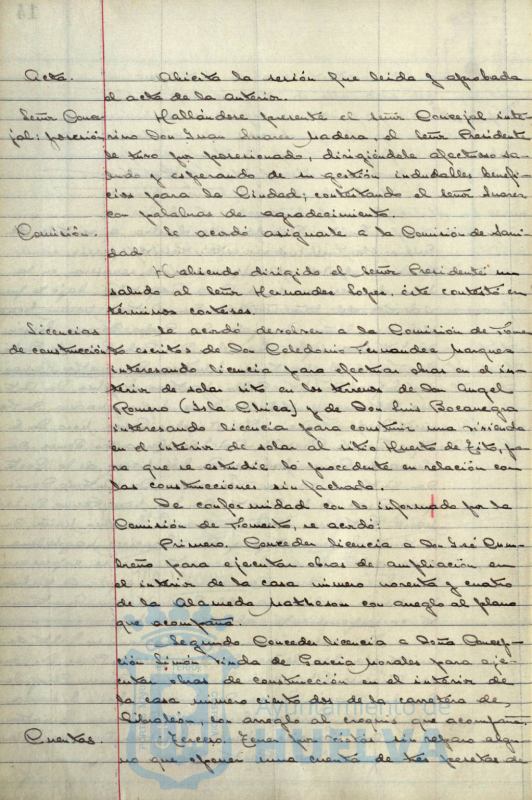 Acta. Abierta la sesión fue leida y aprobada
el acta de la anterior.
Señor Conce- Hallándose presente el señor Concejal inte-
jal: posesión rino Don Juan Suarez Madera, el Señor Presidente
le tuvo por posesionado, dirigiéndole afectuoso sa-
ludo y esperando de su gestión indudables benefi-
cios para la Ciudad; contestando el señor Suarez
con palabras de agradecimiento.
Comisión. Se acordó asignarle a la Comisión de Sani-
dad.
Habiendo dirigido el Señor Presidente un
saludo al Señor Hernandez Lopez, éste contestó en
términos corteses.
Licencias Se acordó devolver a la Comisión de Fomen-
de construcción to escritos de Don Celedonio Fernandez Marquez
interesando licencia para efectuar obras en el in-
terior de solar sito en los terrenos de Don Angel
Romero (Isla Chica) y de Don Luis Bocanegra
interesando licencia para construir una vivienda
en el interior de solar al sitio Huerto de, pa-
ra que se estudie lo procedente en relación con
las construcciones sin fachada.
De conformidad con lo informado por la
Comisión de Fomento, se acordó:
Primero. Conceder licencia a Don José Cum-
breño para ejecutar obras de ampliación en
el interior de la casa número noventa y cuatro
de la Alameda Matheson con arreglo al plano
que acompaña.
Segundo. Conceder licencia a Doña Concep-
ción Simón viuda de Garcia Morales para eje-
cutar obras de construcción en el interior de
la casa número ciento dos de la carretera de
Gibraleón, con arreglo al croquis que acompaña.
Cuentas. Tercero. Tener por vistas sin reparo algu-
no que oponer una cuenta de tres pesetas de
Ayuntamiento de
HUELVA